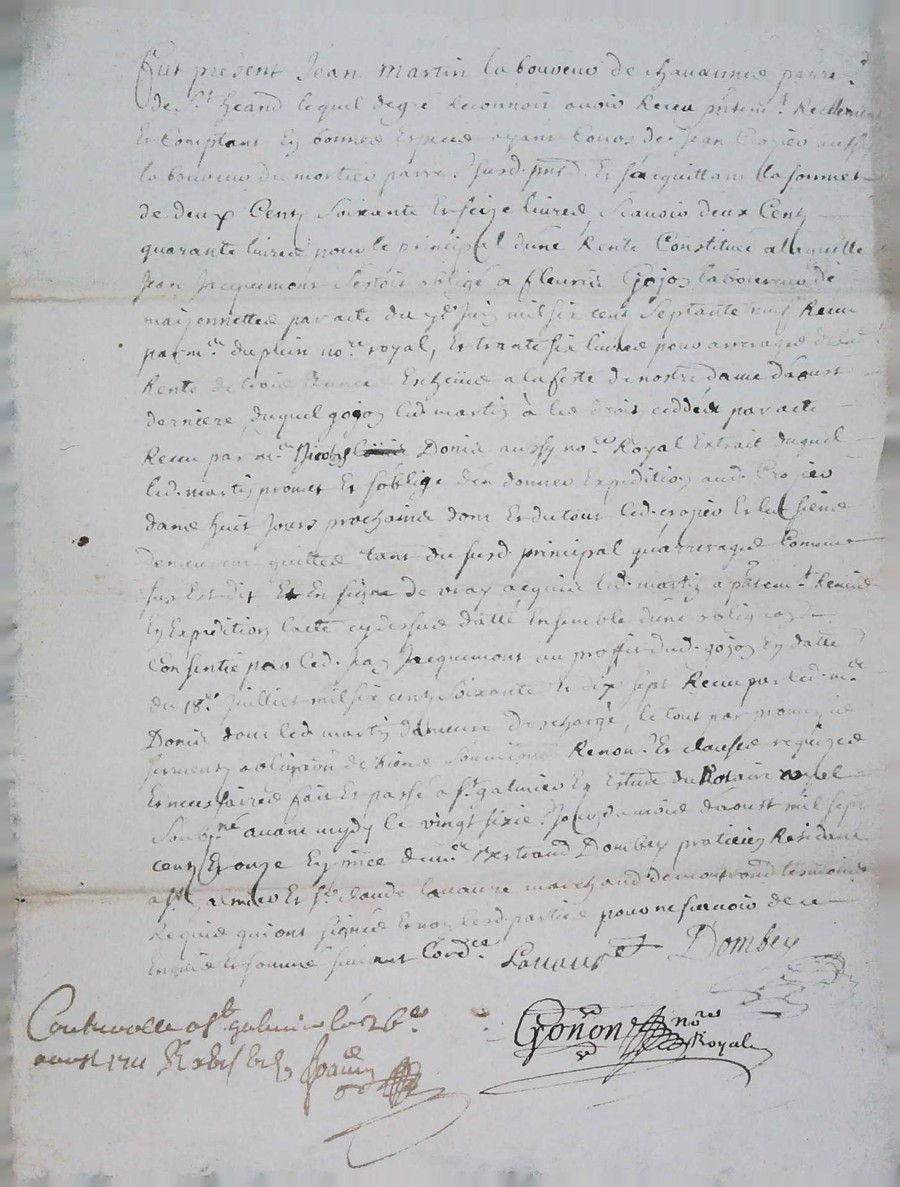 Fut present Jean martin laboureur de chavannes parre.
de St. heand lequel degré Reconnoit avoir Receu pntem.t Reellement
Et Comptant En bonnes Espece ayant Cours de Jean Crozier aussy
laboureur du mortier parre. susd. pnt Et sacquittant la somme
de deux Cent Soixante Et seize livres, scavoir deux Cent
quarante livres pour le principal dúne Rente Constituée alaquelle
Jean Jacquemont sestoit obligé a fleurie Gojon laboureur de
maizonnettes par acte du Juin mil six cent Septante neuf Receu
par m.e duplein no.re royal, Et trante six livres pour arrerages de
Rente de trois Année Escheue a la feste de nostre dame dáoust
derniere, duquel gojon led. martin à les droit ceddés par acte
Receu par m.e Donis aussy no.re Royal Extrait duquel
led. martin promet Et soblige den donner Expedition aud. Crozier
dans huit Jours prochains dont Et du tout led. crozier Et les siens
demeurent quittes tant du susd. principal quárrerages Comme
sus Est dit Et En signe de vray acquit led. martin a pntem.t Remis
En Expedition lacte cydessus datté Ensemble dune obligaon
Consentie par led. Jean Jacquemont au proffit dud. gojon En datte
du 18.e Juilliet mil six cent Soixante dix sept Receu par led. m.e
Donis dont led. martin demeure descharge, le tout par promesse
serment obligaôn de biens Soumiôns Renon.on Et clauses requizes
Et necessaires fait Et passé a St. galmier En Estude du Notaire royal
Soubs.né avant mydy le vingt sixie. Jour du mois dáoust mil sept
cent Et onze En pnce de m.e Bertrand Dombey praticien Resident
a St. galmier Et Sr. claude lauaure marchand de montrond temoins
Requis qui ont signés Et non lesd. parties pour ne scavoir de ce
Enquis Et sommé suivant lord.ce
Dombey
Gonon no.re Royal
Controolle a St. galmier le 26e
aoust 1711